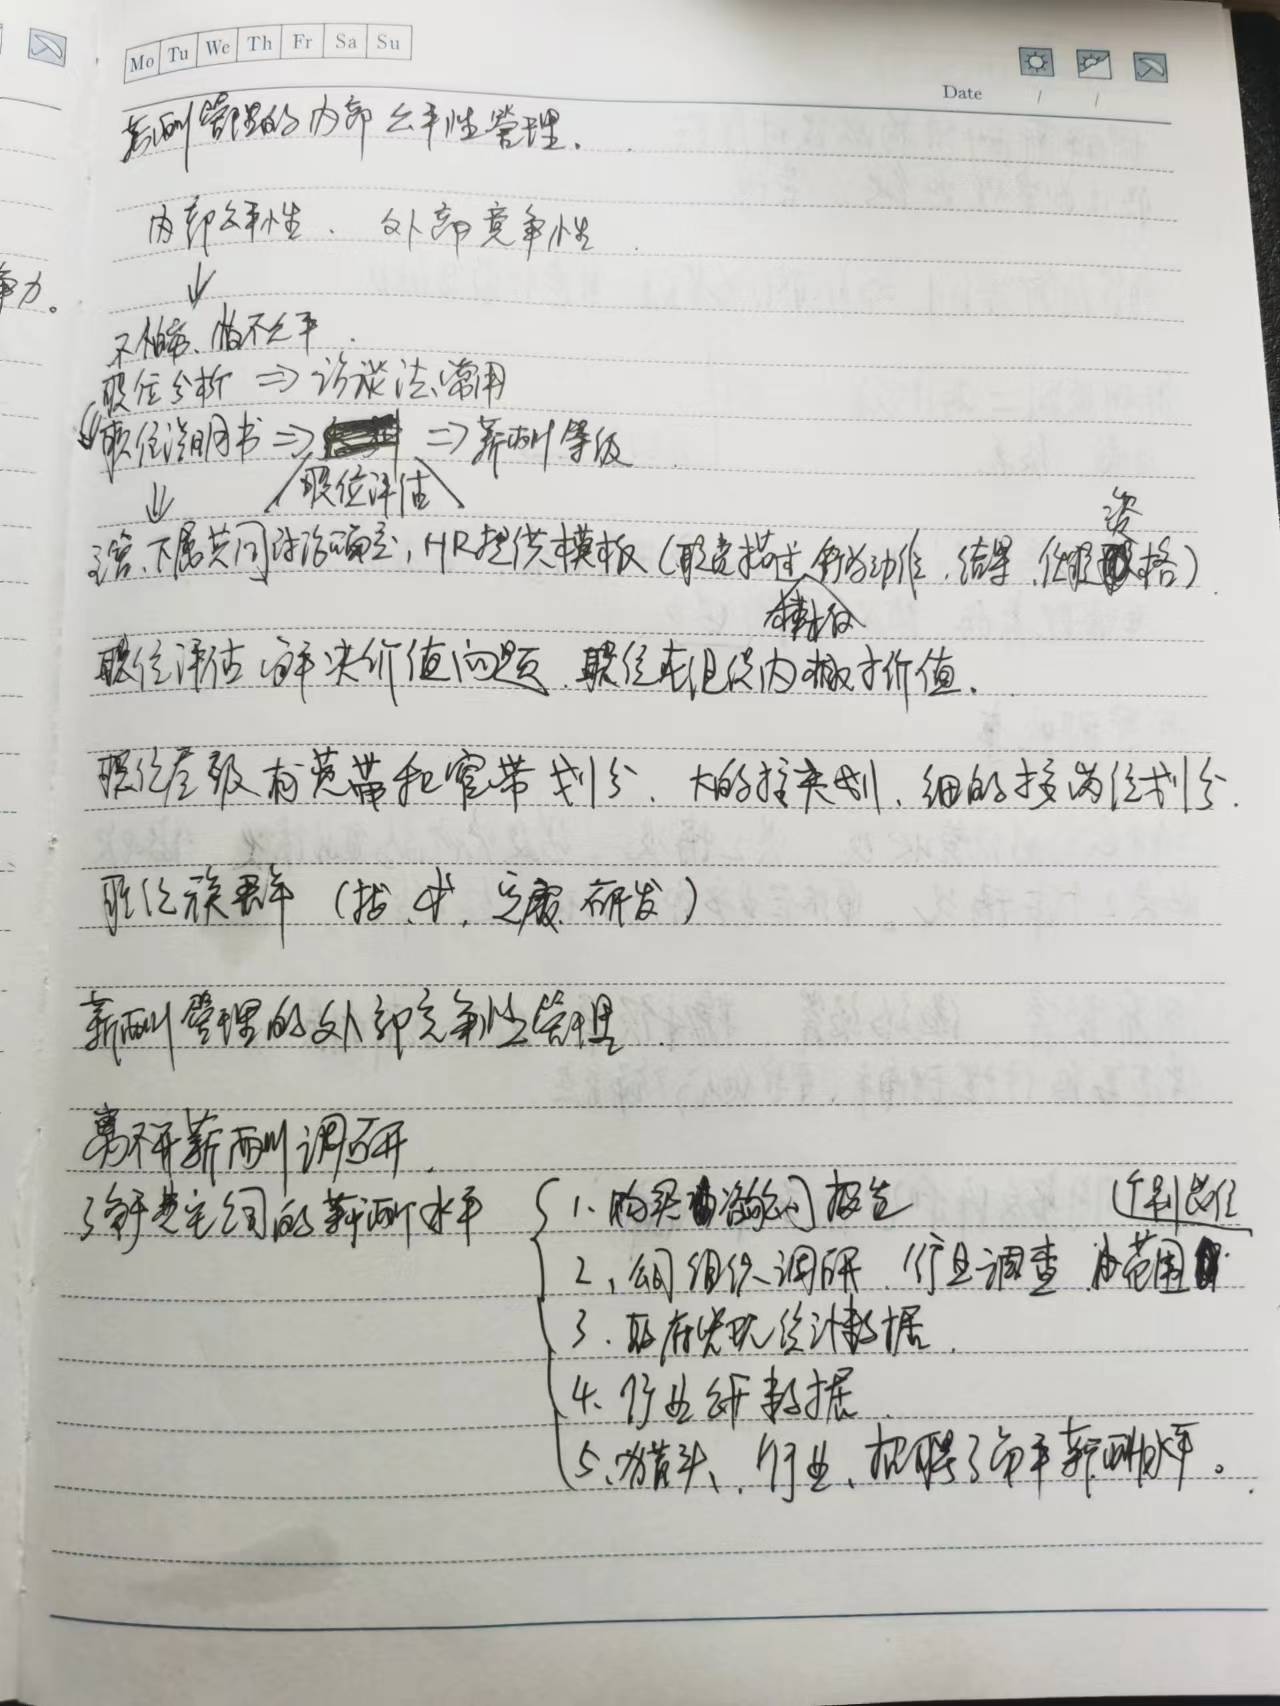 Mo Tu We Th Fr Sa Su
Date / /
薪酬管理的内部公平性管理.
内部公平性. 外部竞争性
↓
争力。
不怕苦、怕不公平.
职位分析 ⇒ 访谈法、常用
职位说明书 ⇒ ⇒ 薪酬等级
职位评估
↓
资
主管、下属共同讨论确定, HR提供模板 (职责描述、行为动作、结果、任职格)
模板
职位评估 解决价值问题. 职位在组织内 价值.
职位层级 有宽带和窄带划分. 大的按类划、细的按岗位划分.
职位族群 ( 研发)
薪酬管理的外部竞争性管理.
离不开薪酬调研.
了解其它公司的薪酬水平
1. 购买咨询公司报告
2、公司组织调研. 行业调查 小范围
3. 政府 统计数据.
4. 行业公开数据.
5、 猎头、行业、招聘了解薪酬水平。